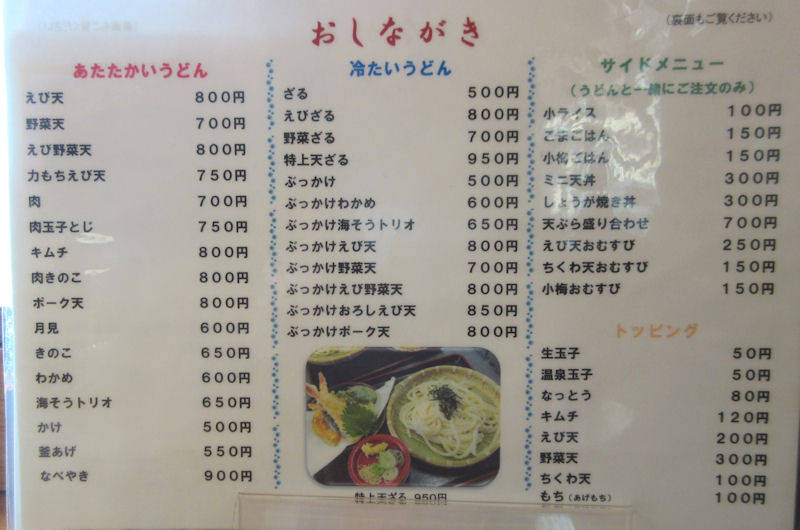 おしながき
（裏面もご覧ください）
あたたかいうどん
えび天 800円
野菜天 700円
えび野菜天 800円
力もちえび天 750円
肉 700円
肉玉子とじ 750円
キムチ 800円
肉きのこ 800円
ポーク天 800円
月見 600円
きのこ 650円
わかめ 600円
海そうトリオ 650円
かけ 500円
釜あげ 550円
なべやき 900円
冷たいうどん
ざる 500円
えびざる 800円
野菜ざる 700円
特上天ざる 950円
ぶっかけ 500円
ぶっかけわかめ 600円
ぶっかけ海そうトリオ 650円
ぶっかけえび天 800円
ぶっかけ野菜天 700円
ぶっかけえび野菜天 800円
ぶっかけおろしえび天 850円
ぶっかけポーク天 800円
特上天ざる 950円
サイドメニュー
（うどんと一緒にご注文のみ）
小ライス 100円
ごまごはん 150円
小梅ごはん 150円
ミニ天丼 300円
しょうが焼き丼 300円
天ぷら盛り合わせ 700円
えび天おむすび 250円
ちくわ天おむすび 150円
小梅おむすび 150円
トッピング
生玉子 50円
温泉玉子 50円
なっとう 80円
キムチ 120円
えび天 200円
野菜天 300円
ちくわ天 100円
もち（あげもち） 100円